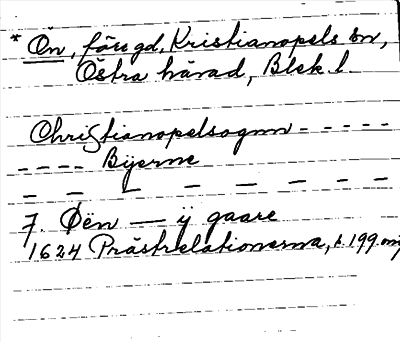 * Ön, förs gd, Kristianopels sn,
Östra härad, Blek. l.
Christianopelsognn - - - - -
- - - - Byerne
- - - - - - - -
7. Øën — ij gaare
1624 Prästrelationerna, s. 199